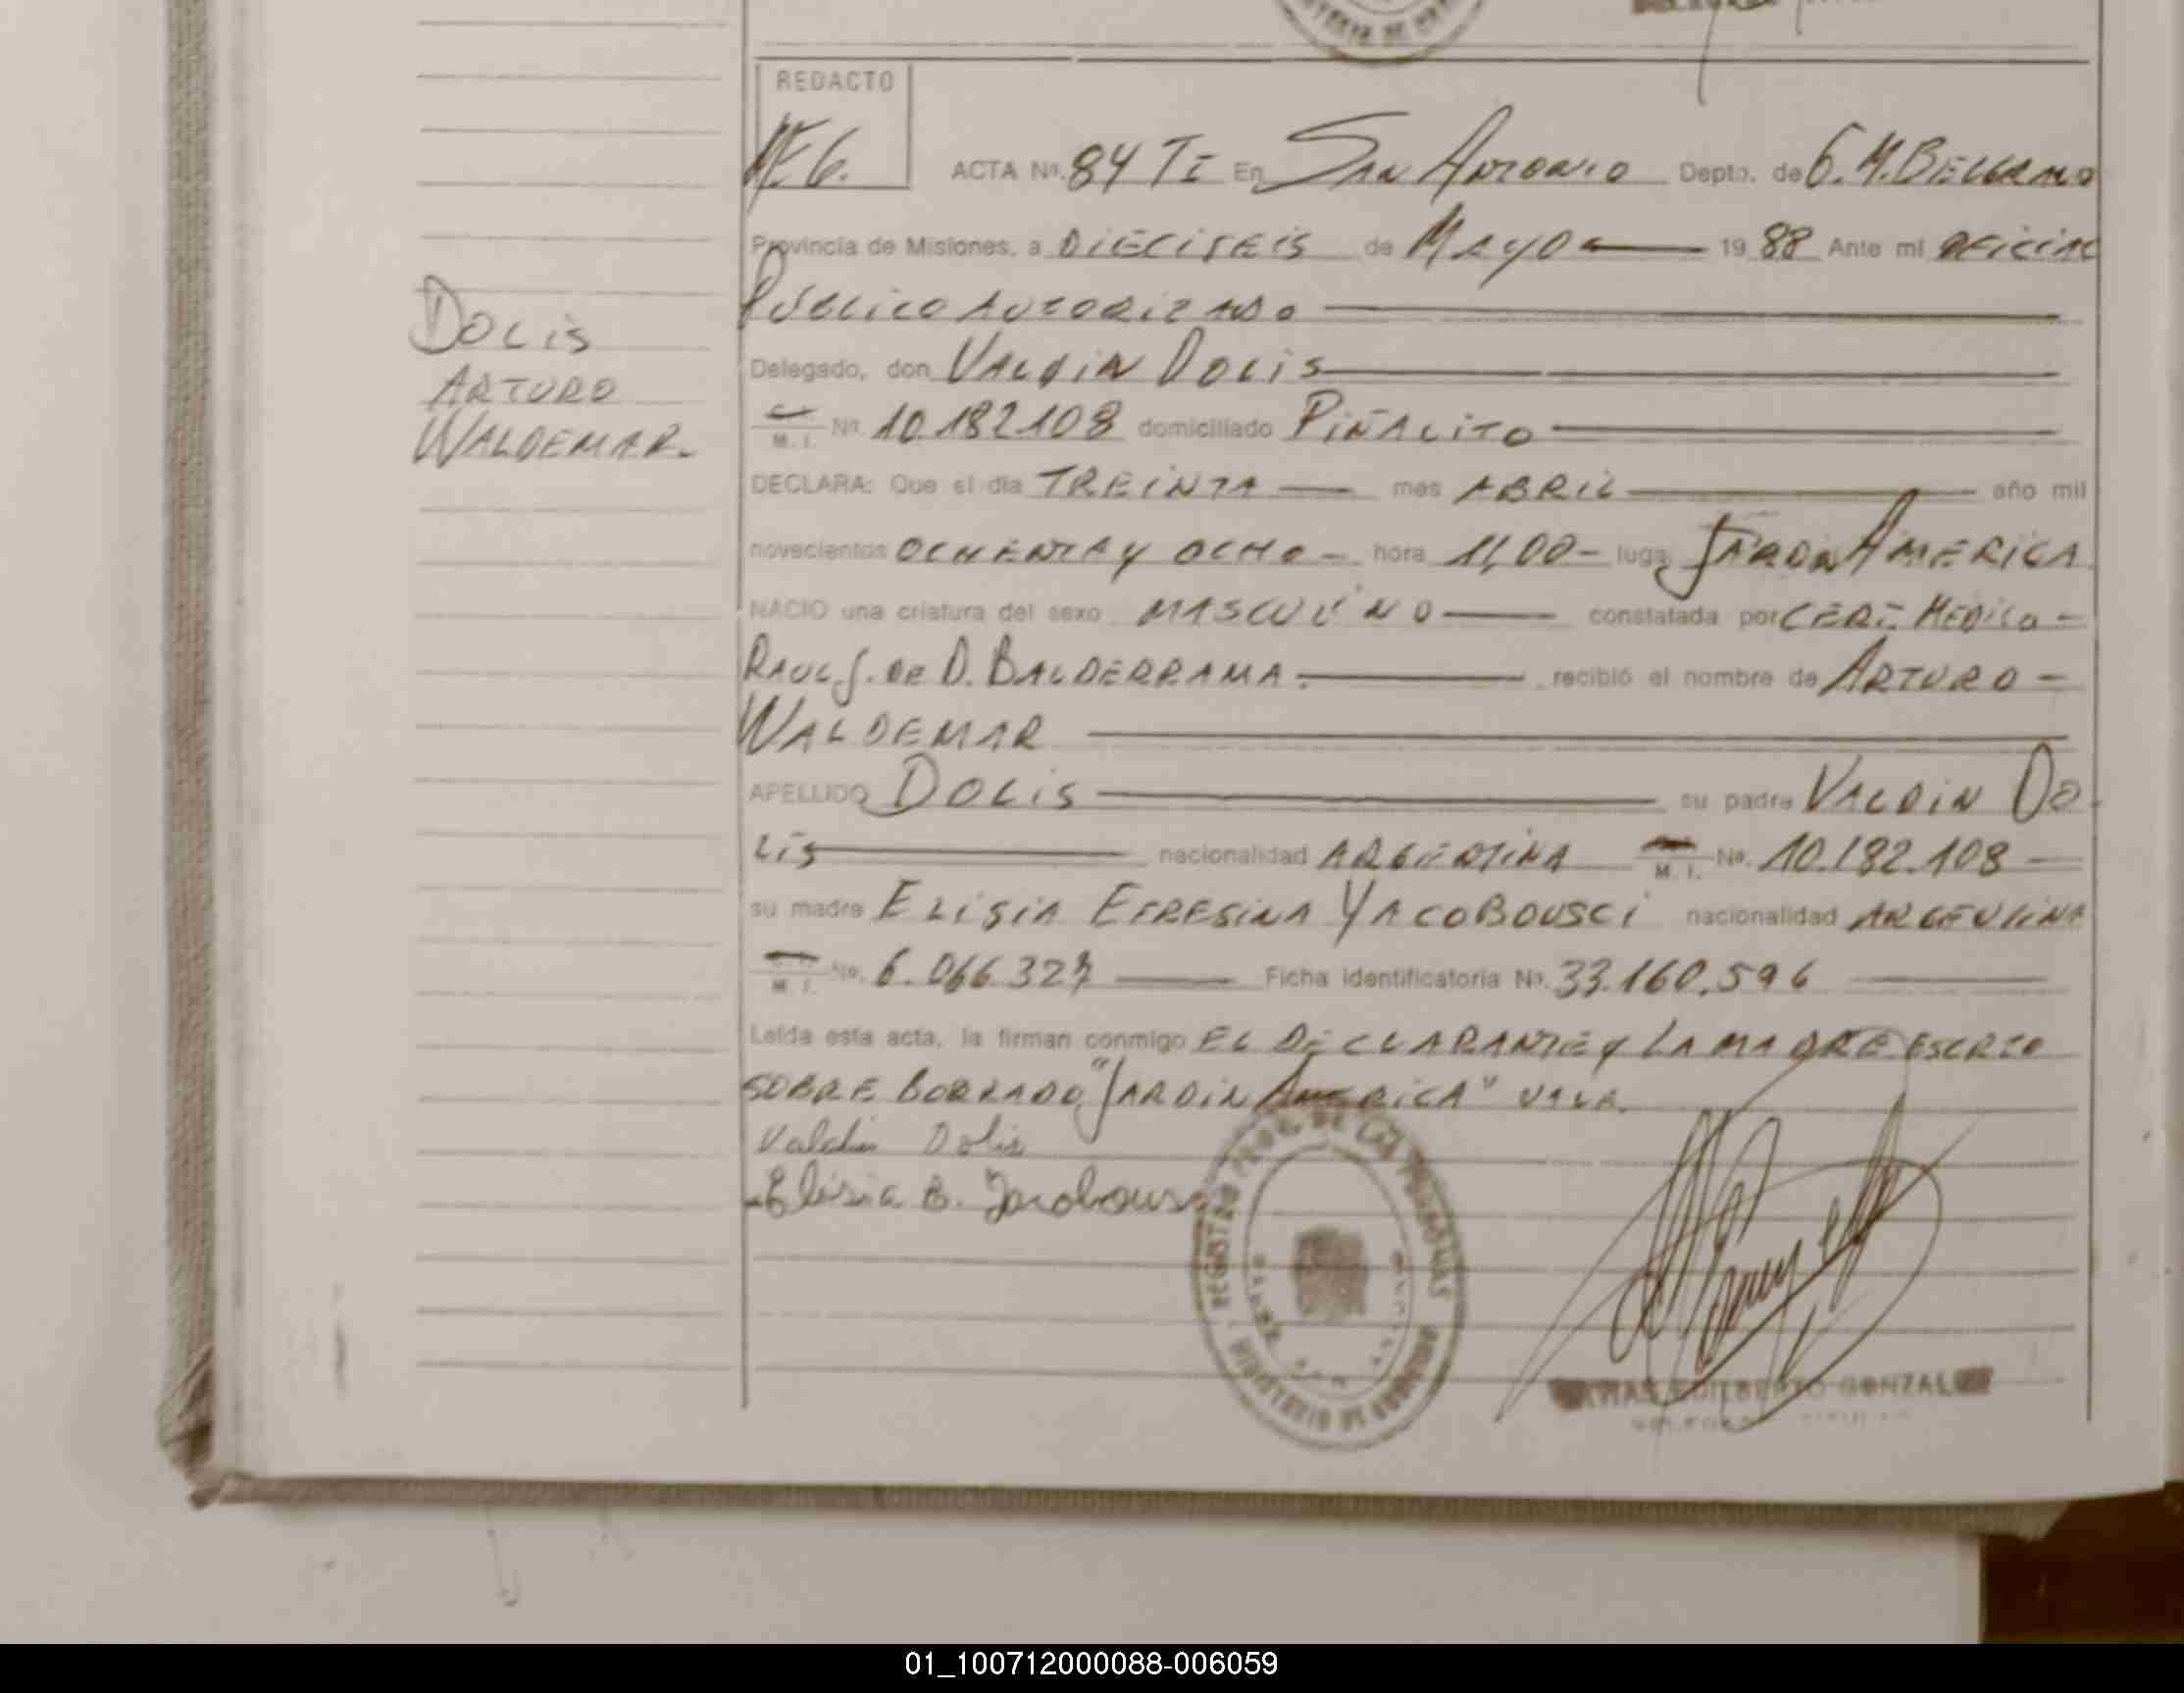 REDACTO
ACTA Nº. 84 TI En SAN ANTONIO Depto. de G.M.BELGRANO
Provincia de Misiones, a DIECISEIS de MAYO 19 88 Ante mí OFICIAL
PUBLICO AUTORIZADO
Delegado, don VALDIN DOLIS
M. I. Nº 10.182.108 domiciliado PIÑALITO
DOLIS
ARTURO
WALDEMAR.
DECLARA: Que el día TREINTA mes ABRIL año mil
novecientos OCHENTA Y OCHO - hora 11,00 - lugar JARDIN AMERICA
NACIO una criatura del sexo MASCULINO constatada por CERT. MEDICO -
RAUL J. DE D. BALDERRAMA. recibió el nombre de ARTURO -
WALDEMAR
APELLIDO DOLIS su padre VALDIN DO
LIS nacionalidad ARGENTINA M. I. Nº. 10.182.108
su madre ELISIA EFRESINA YACOBOUSCI nacionalidad ARGENTINA
M. I. Nº. 6.066.327 Ficha Identificatoria Nº. 33.160.596
Leída esta acta, la firman conmigo EL DECLARANTE Y LA MADRE ESCRTO
SOBRE BORRADO "JARDIN AMERICA" VALE.
Valdin Dolis
Elisia E.
REGISTRO PROV. DE LAS PERSONAS
MINISTERIO DE GOBIERNO
EDILBERTO GONZAL
01_100712000088-006059